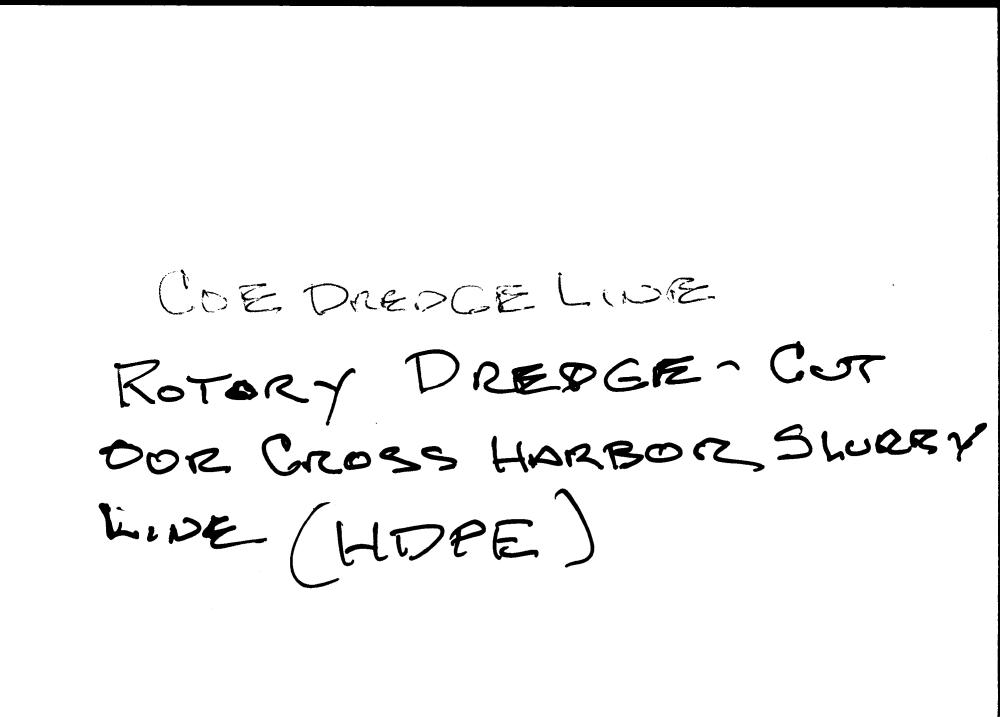 COE DREDGE LINE
ROTORY DREDGE - CUT
OUR CROSS HARBOR SLURRY
LINE (HDPE)